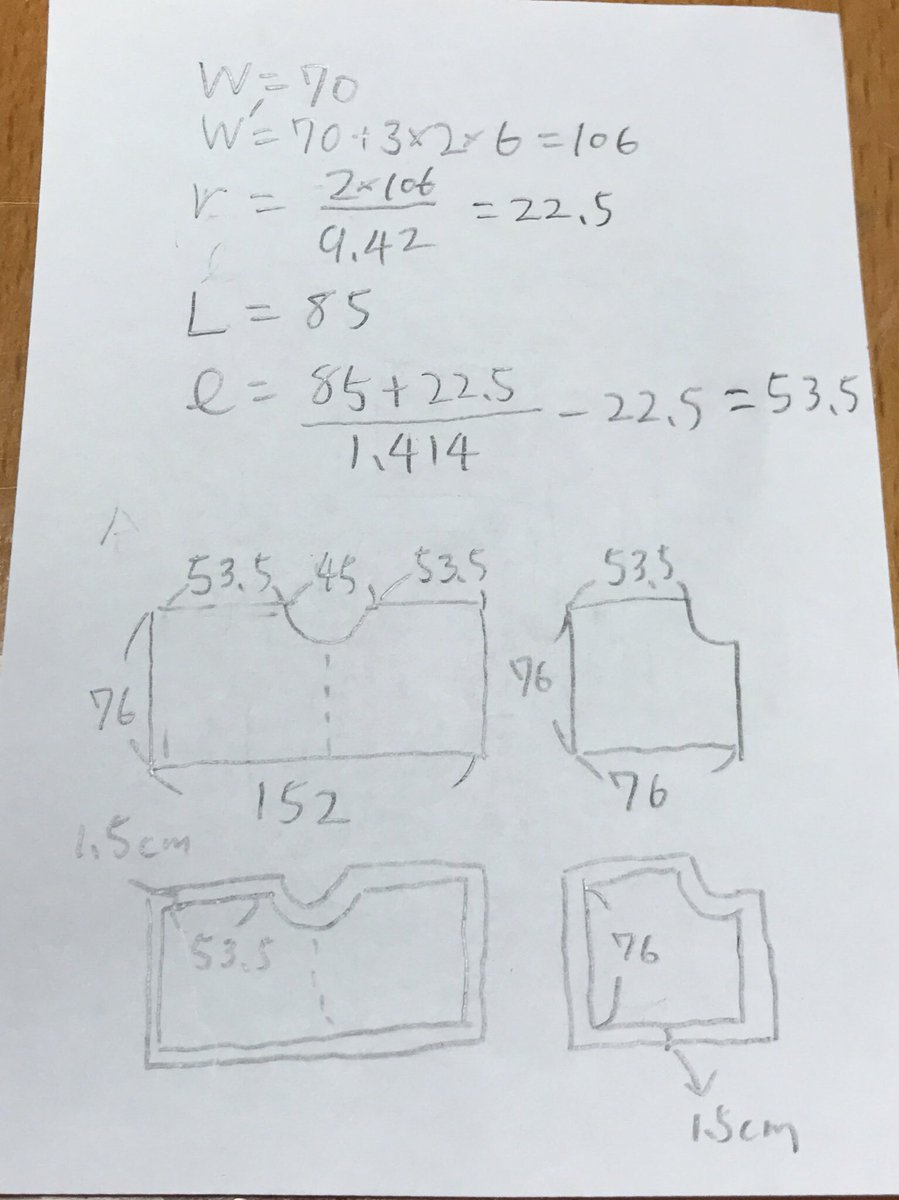 W=70
W'=70+3×2×6=106
r = 2×106/9.42 =22.5
L=85
l= 85+22.5/1.414 -22.5=53.5
A
53.5 45 53.5 53.5
76 76
152 76
1.5cm
53.5 76
1.5cm